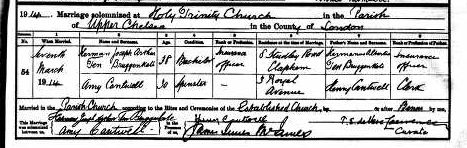 1914. Marriage solemnized at Holy Trinity Church in the Parish
of Upper Chelsea in the County of London
No. When Married. Name and Surname. Age. Condition. Rank or Profession. Residence at the time of Marriage. Father's Name and Surname. Rank or Profession of Father.
54
Seventh March 1914
Herman Joseph Arthur Ten Bruggenkate 38 Bachelor Insurance officer Studley Road Clapham Herman Albertus Ten Bruggenkate Insurance officer
Amy Cantwell 30 Spinster 3 Royal Avenue Henry Cantwell Clerk
Married in the Parish Church according to the Rites and Ceremonies of the Established Church, by or after Banns by me,
This Marriage was solemnized between us, Herman Joseph Arthur Ten Bruggenkate
Amy Cantwell
in the Presence of us, Henry Cantwell
James
Curate